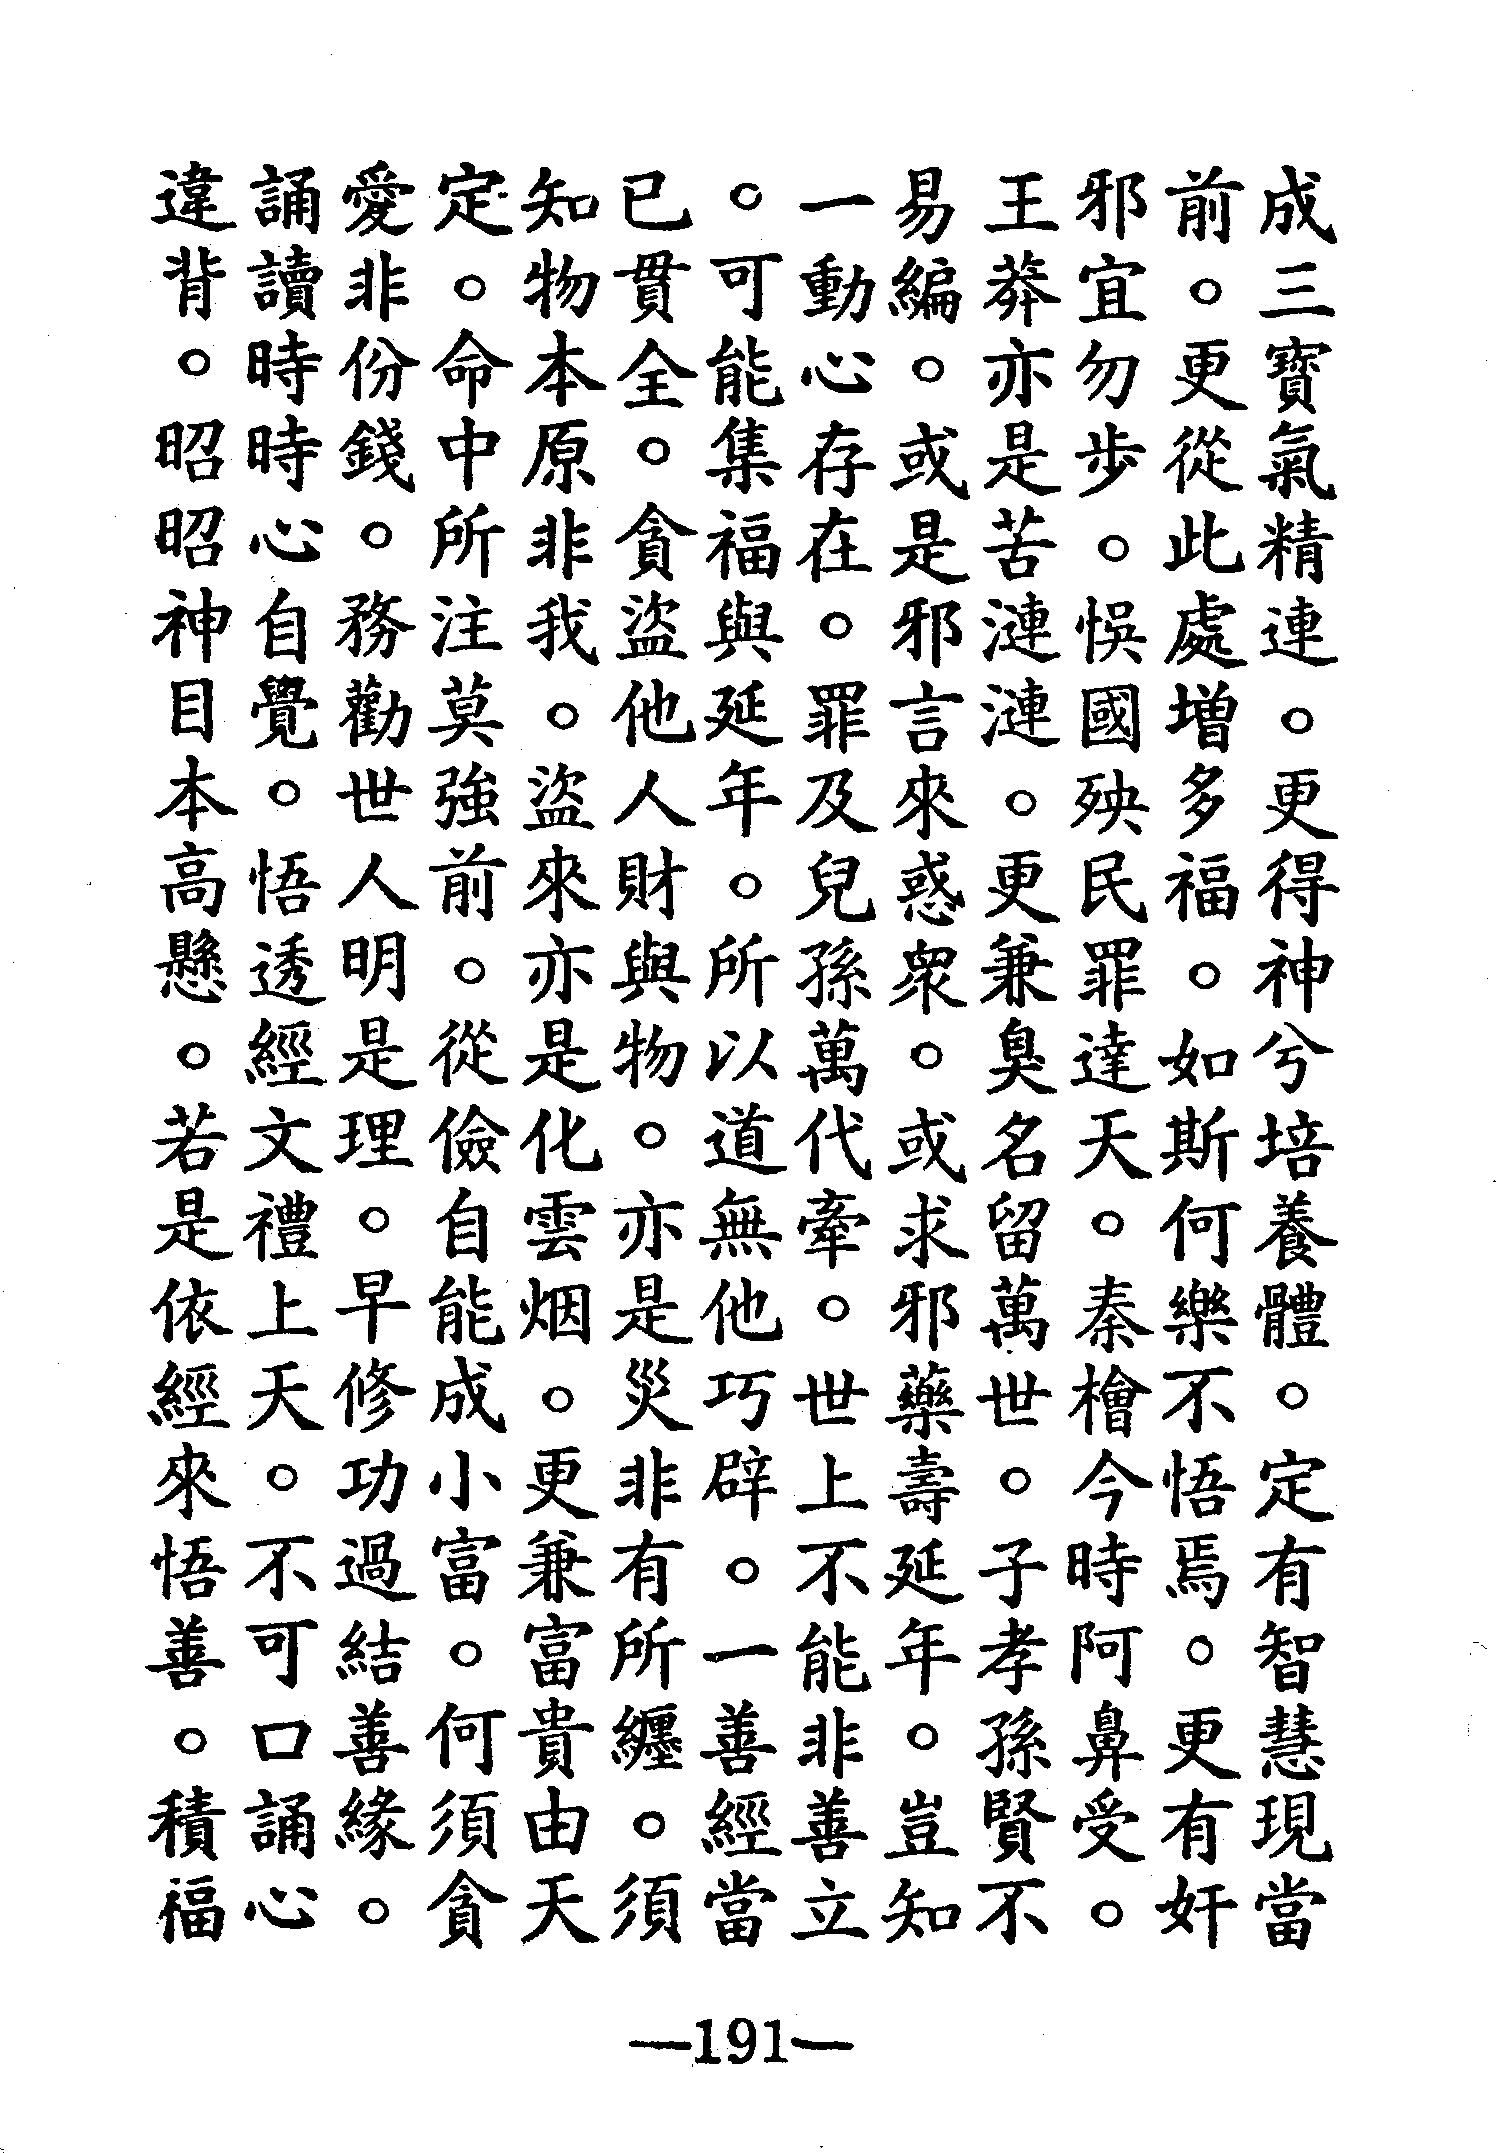 成三寶氣精連。更得神兮培養體。定有智慧現當
前。更從此處增多福。如斯何樂不悟焉。更有奸
邪宜勿步。悞國殃民罪達天。秦檜今時阿鼻受。
王莽亦是苦漣漣。更兼臭名留萬世。子孝孫賢不
易編。或是邪言來惑眾。或求邪藥壽延年。豈知
一動心存在。罪及兒孫萬代牽。世上不能非善立
。可能集福與延年。所以道無他巧辟。一善經當
已貫全。貪盜他人財與物。亦是災非有所纏。須
知物本原非我。盜來亦是化雲烟。更兼富貴由天
定。命中所注莫強前。從儉自能成小富。何須貪
愛非份錢。務勸世人明是理。早修功過結善緣。
誦讀時時心自覺。悟透經文禮上天。不可口誦心
違背。昭昭神目本高懸。若是依經來悟善。積福
—191—